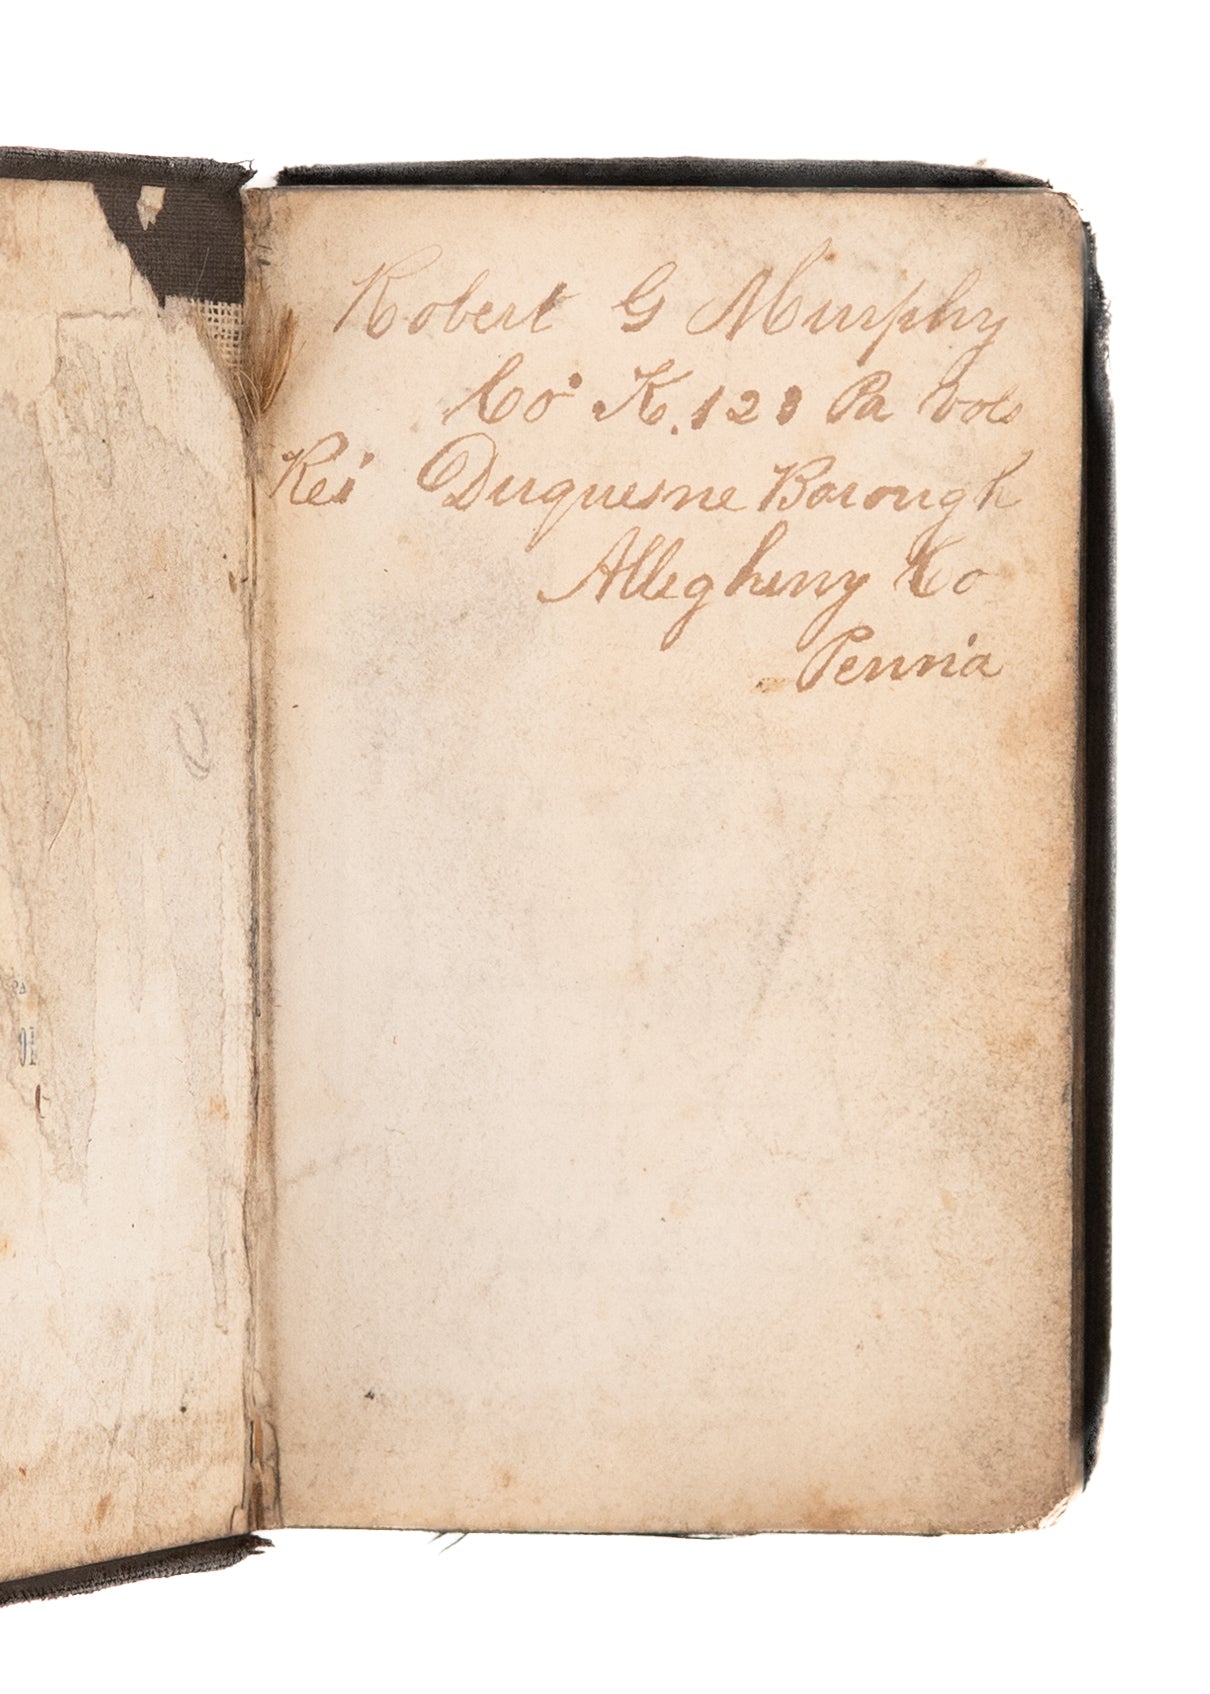 Robert G Murphy
Co K. 123 Pa Vols
Res Duquesne Borough
Allegheny Co
Penn'a